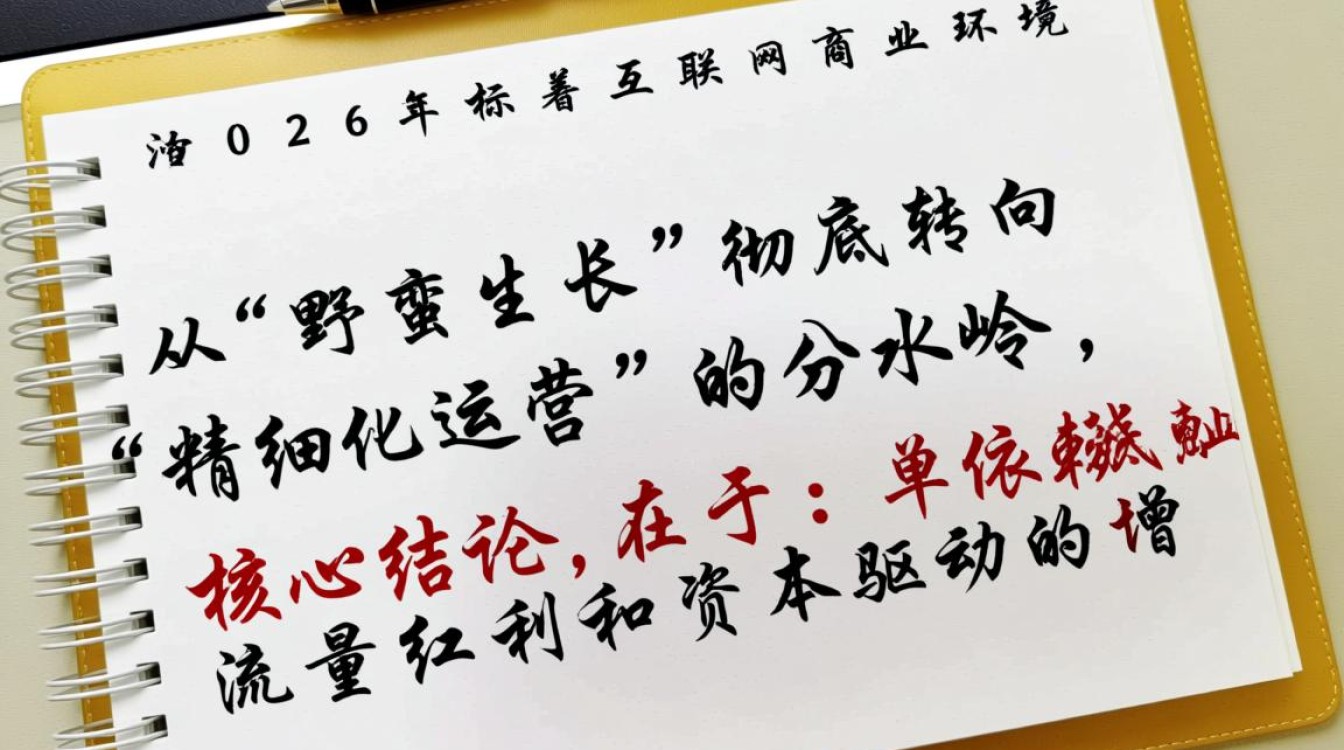 026年标着互联网商业环境
从“野蛮生长”彻底转向
“精细化运营”的分水岭，
核心结论，在于：单依
流量红利和资本驱动的增